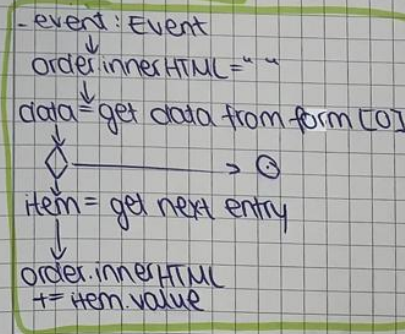 _event: Event
order.innerHTML=" "
data= get data from form [0]
item= get next entry
order.innerHTML
+= item.value